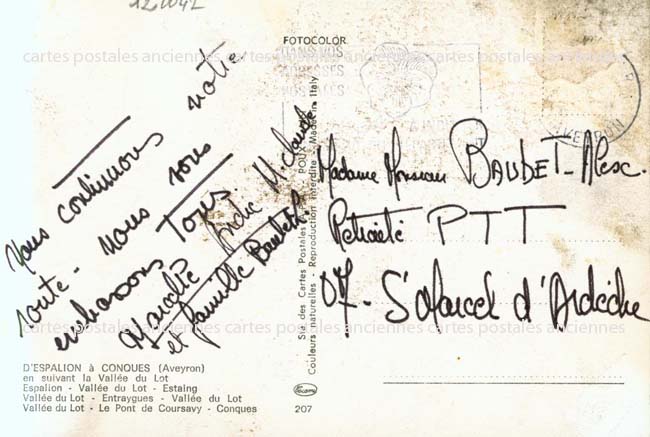 12 2042
FOTOCOLOR
DANS VOS
cartes postales anciennes cartes postales anciennes
Nous continuons notre
route - Nous vous
embrassons Tous
Marcelle André M. Claude
et famille
Madame Monsieur BAUDET - Alesc.
Retraité PTT
07 - St Marcel d'Ardèche
cartes postales anciennes cartes postales anciennes
D'ESPALION à CONQUES (Aveyron)
en suivant la Vallée du Lot
Espalion - Vallée du Lot - Estaing
Vallée du Lot - Entraygues - Vallée du Lot
Vallée du Lot - Le Pont de Coursavy - Conques
Sté. des Cartes Postales POUX
Couleurs naturelles - Reproduction interdite - Made in Italy
207